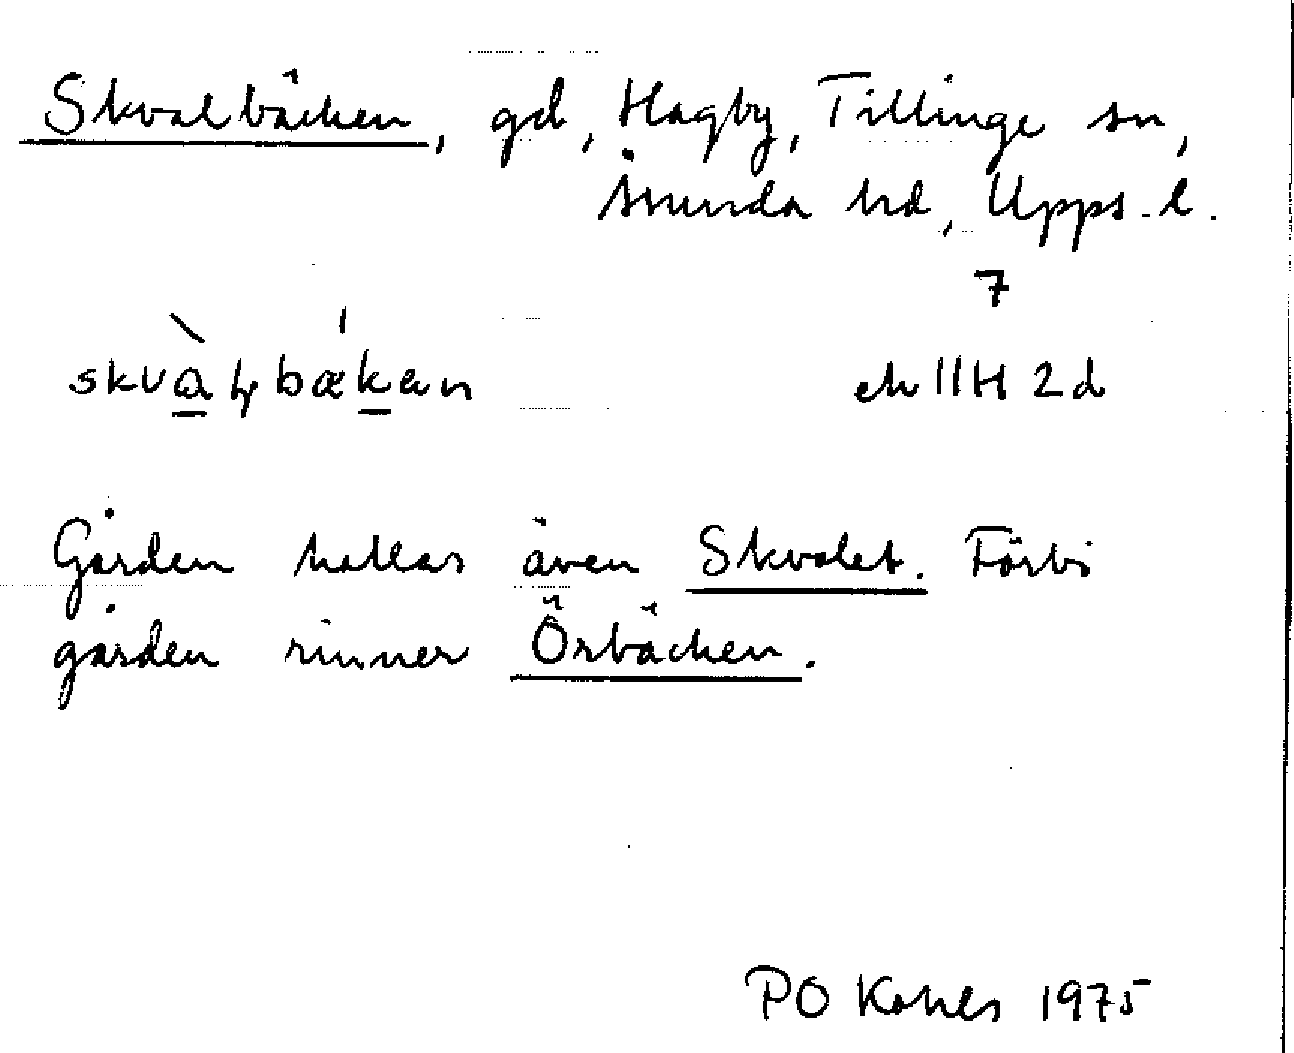 Skvalbäcken, gd, Hagby, Tillinge sn,
Åsunda hd, Upps. l.
7
skvàlbækan ek 11H 2d
Gården kallas även Skvalet. Förbi
gården rinner Örbäcken.
PO 1975